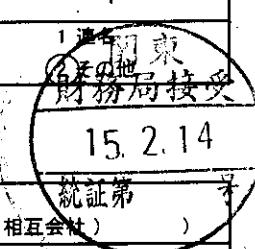 1 連名
② その他
関東
財務局接受
15.2.14
統証第 号
相互会社) )